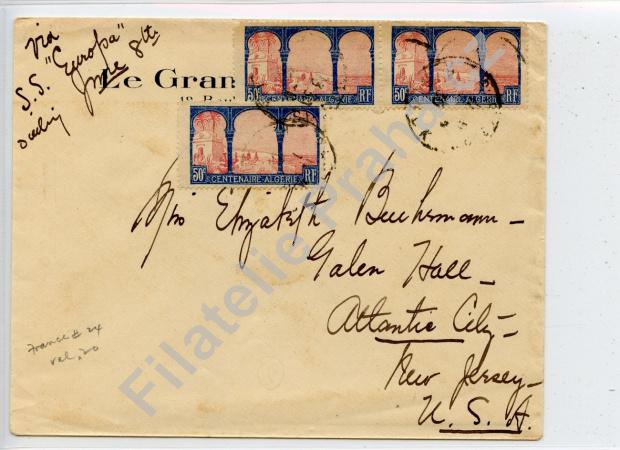 Via
S.S. "Europa"
sailing June 8th
Le Gran
50c CENTENAIRE-ALGÉRIE RF
50c CENTENAIRE-ALGÉRIE RF
50c CENTENAIRE-ALGÉRIE RF
Miss Elizabeth Buehrmann -
Galen Hall -
Atlantic City -
New Jersey -
U. S. A.
France # 24
val. 20
Filatelie Praha.cz